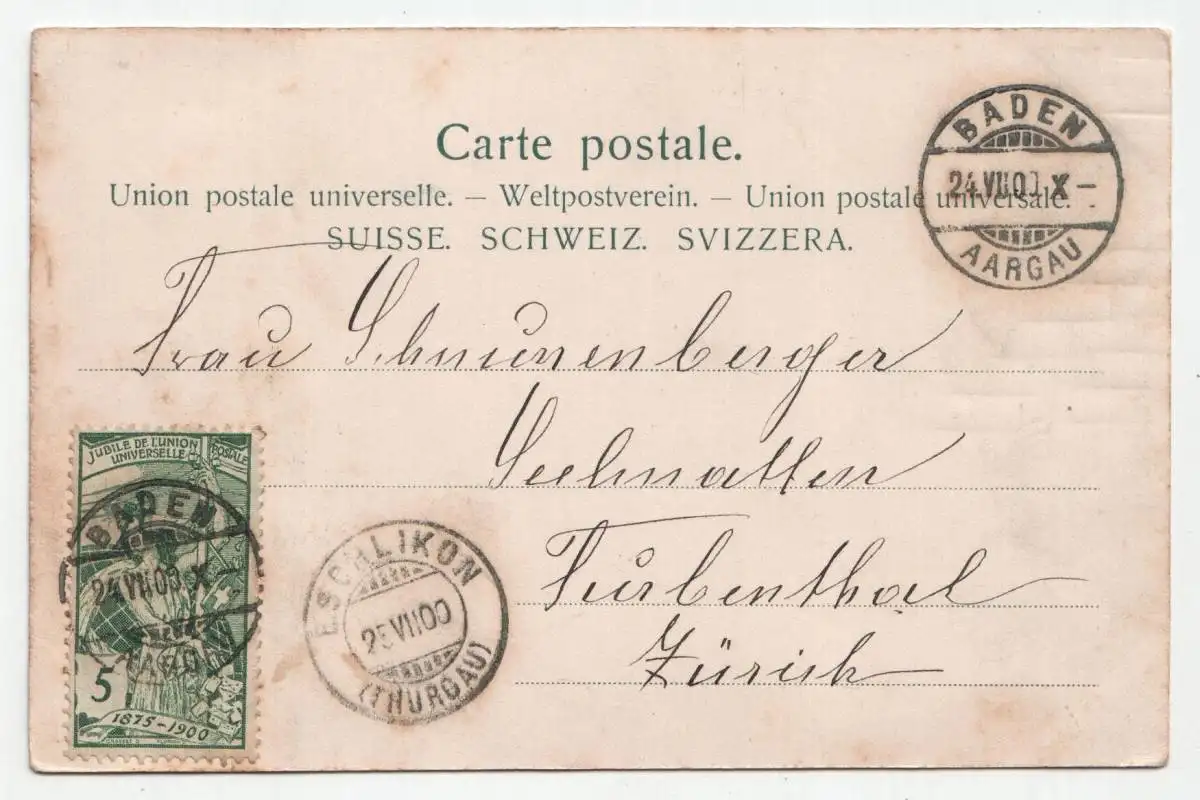 Carte postale.
Union postale universelle. — Weltpostverein. — Union postale universale.
SUISSE. SCHWEIZ. SVIZZERA.
BADEN
24.VII.00 X –
AARGAU
Frau Schnurrenberger
Seelmatten
Turbenthal
Zürich
JUBILE DE L'UNION
POSTALE
UNIVERSELLE
BADEN
24.VII.00 X –
5
1875–1900
ESCHLIKON
25 VII 00
(THURGAU)